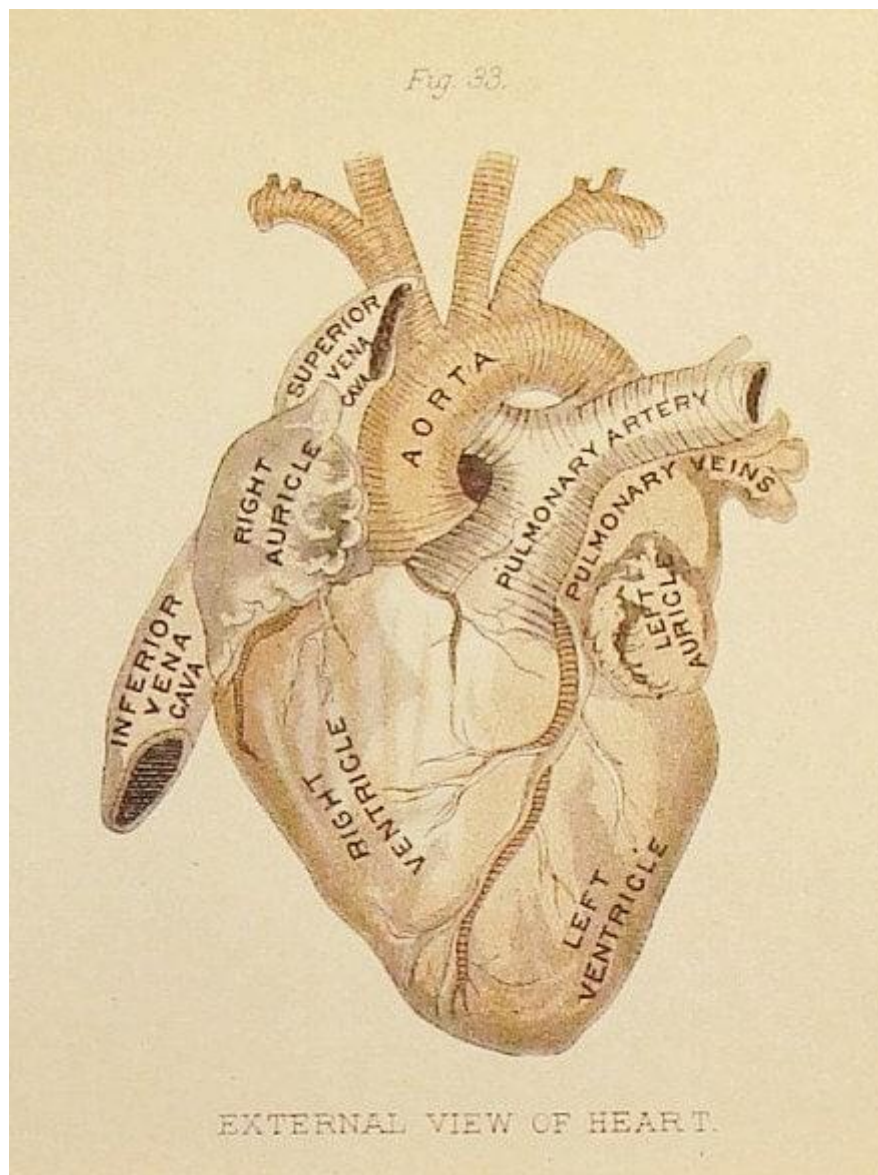 Fig. 33.
SUPERIOR
VENA
CAVA
AORTA
PULMONARY ARTERY
PULMONARY VEINS
RIGHT
AURICLE
LEFT
AURICLE
INFERIOR
VENA
CAVA
RIGHT
VENTRICLE
LEFT
VENTRICLE
EXTERNAL VIEW OF HEART.